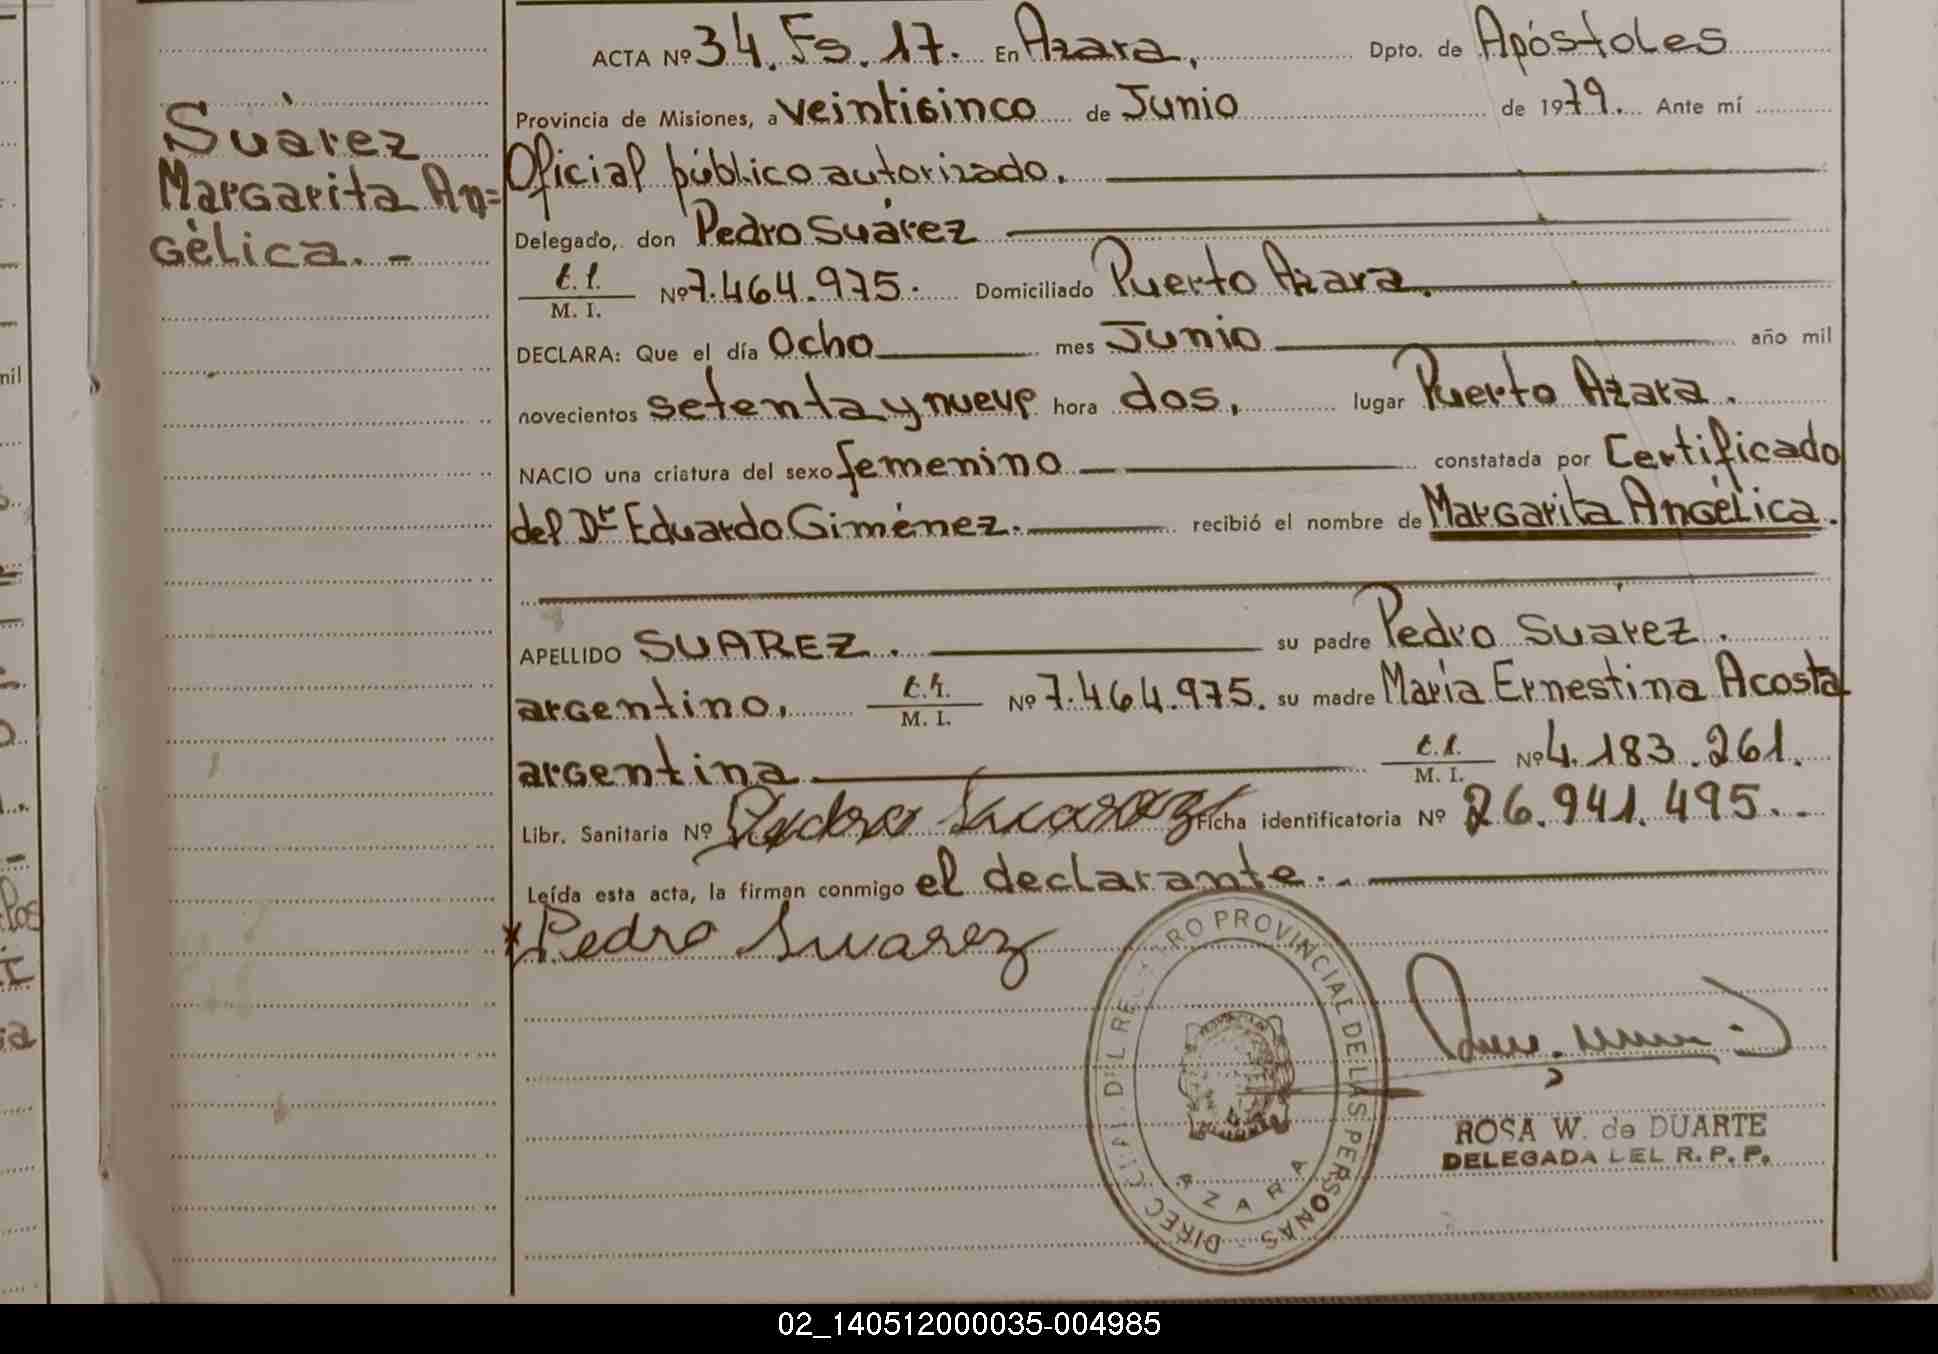 Suárez
Margarita An=
gélica. -
ACTA Nº 34. Fs. 17. En Azara, Dpto. de Apóstoles
Provincia de Misiones, a veintisinco de Junio de 1979. Ante mí
Oficial público autorizado.
Delegado, don Pedro Suárez
M. I. Nº 7.464.975. Domiciliado Puerto Azara.
DECLARA: Que el día Ocho mes Junio año mil
novecientos setenta y nueve hora dos, lugar Puerto Azara.
NACIO una criatura del sexo femenino constatada por Certificado
del Dr Eduardo Giménez. recibió el nombre de Margarita Angélica.
APELLIDO SUAREZ. su padre Pedro Suárez.
argentino, M. I. Nº 7.464.975. su madre María Ernestina Acosta
argentina M. I. Nº 4.183.261.
Libr. Sanitaria Nº Pedro Suarez Ficha identificatoria Nº 26.941.495. -
Leída esta acta, la firman conmigo el declarante. -
Pedro Suarez
PROVINCIAL DE LAS PERSONAS - DIREC
AZARA
ROSA W. de DUARTE
DELEGADA DEL R. P. P.
02_140512000035-004985